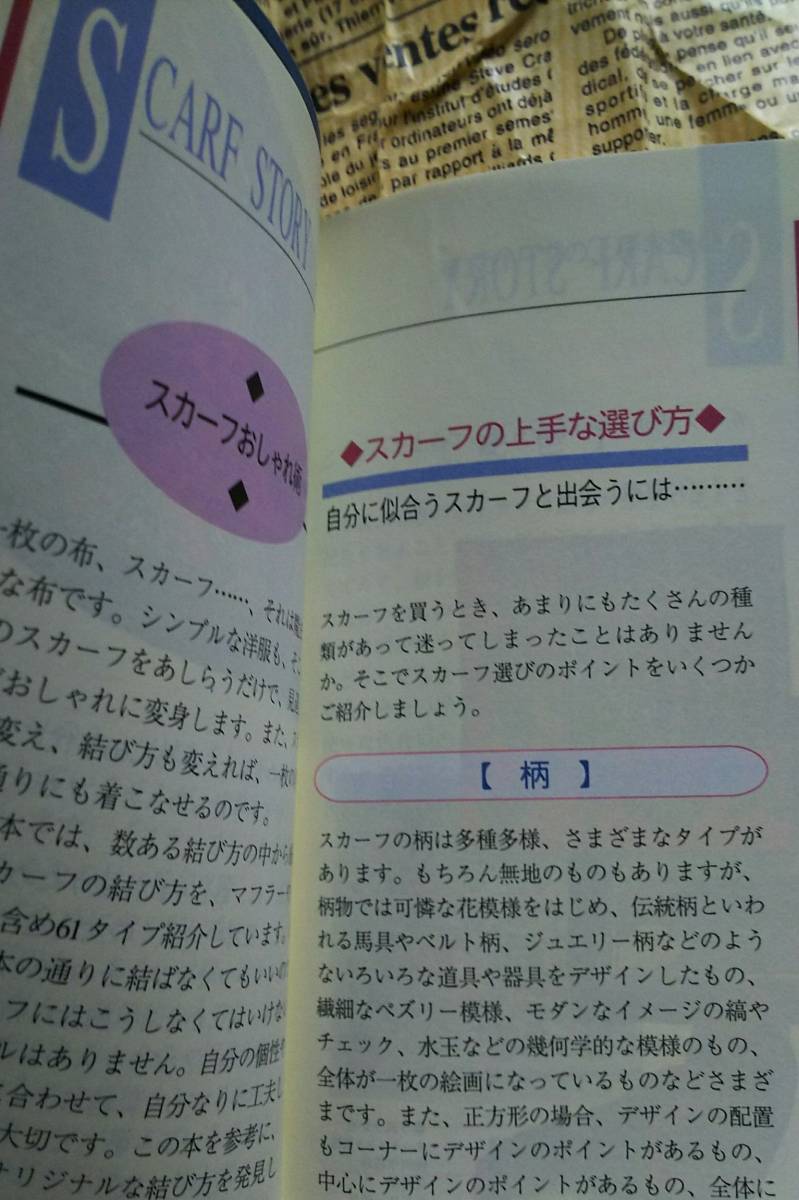 es ventes re
Steve Cra
l'institut d'études
ordinateurs ont déjà
au premier semes
par rapport à la mê
votre santé.
pense qu'il
en lien avec
SCARF STORY
スカーフおしゃれ術
一枚の布、スカーフ……、それは
な布です。シンプルな洋服も、
のスカーフをあしらうだけで、
おしゃれに変身します。また、
変え、結び方も変えれば、一枚の
通りにも着こなせるのです。
本では、数ある結び方の中から
カーフの結び方を、マフラー
含め61タイプ紹介しています。
本の通りに結ばなくてもいいの
フにはこうしなくてはいけない
ルはありません。自分の個性
合わせて、自分なりに工夫し
大切です。この本を参考に、
オリジナルな結び方を発見し
◆スカーフの上手な選び方◆
自分に似合うスカーフと出会うには………
スカーフを買うとき、あまりにもたくさんの種
類があって迷ってしまったことはありません
か。そこでスカーフ選びのポイントをいくつか
ご紹介しましょう。
【 柄 】
スカーフの柄は多種多様、さまざまなタイプが
あります。もちろん無地のものもありますが、
柄物では可憐な花模様をはじめ、伝統柄といわ
れる馬具やベルト柄、ジュエリー柄などのよう
ないろいろな道具や器具をデザインしたもの、
繊細なペズリー模様、モダンなイメージの縞や
チェック、水玉などの幾何学的な模様のもの、
全体が一枚の絵画になっているものなどさまざ
まです。また、正方形の場合、デザインの配置
もコーナーにデザインのポイントがあるもの、
中心にデザインのポイントがあるもの、全体に